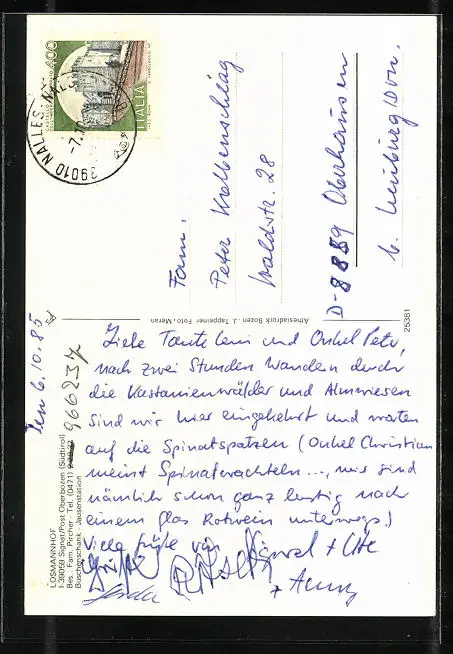 400
ITALIA
39010 NALLES
Fam.
Peter
Waldstr. 28
D-8859 Oberhausen
b. Neuburg/Don.
Athesiadruck Bozen - J. Tappeiner Foto-Meran
25381
den 6.10.85
966237
LOSMANNHOF
I-39059 Signat/Post Oberbozen (Südtirol)
Bes.: Fam. Pircher - Tel. (0471)
Buschenschank - Jausenstation
Liebe Tante Leni und Onkel Peter,
nach zwei Stunden Wandern durch
die Kastanienwälder und Almwiesen
sind wir hier eingekehrt und warten
auf die Spinatspatzen (Onkel Christian
meint Spinatwachteln..., wir sind
nämlich schon ganz lustig nach
einem Glas Rotwein unterwegs!)
Viele Grüße von + Ute
Grüße
+ Anny